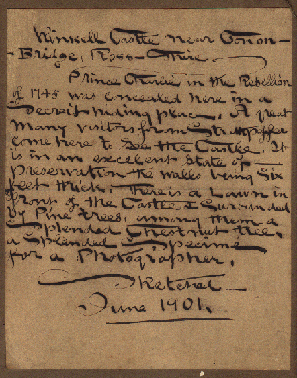 Kinkell Castle near Conon-
-Bridge, Ross-Shire.
Prince Charlie in the Rebellion
of 1745 was concealed here in a
Secrit hiding place. A great
many visitors from Strathpeffer
come here to See the Castle. It
is in an excelent State of
Preservation the walls being Six
feet thick. There is a Lawn in
front of the Castle & Surrounded
by Pine trees, among them a
Splended Chestnut tree.
a Splended Specime
for a Photographer.
Sketched
June 1901.